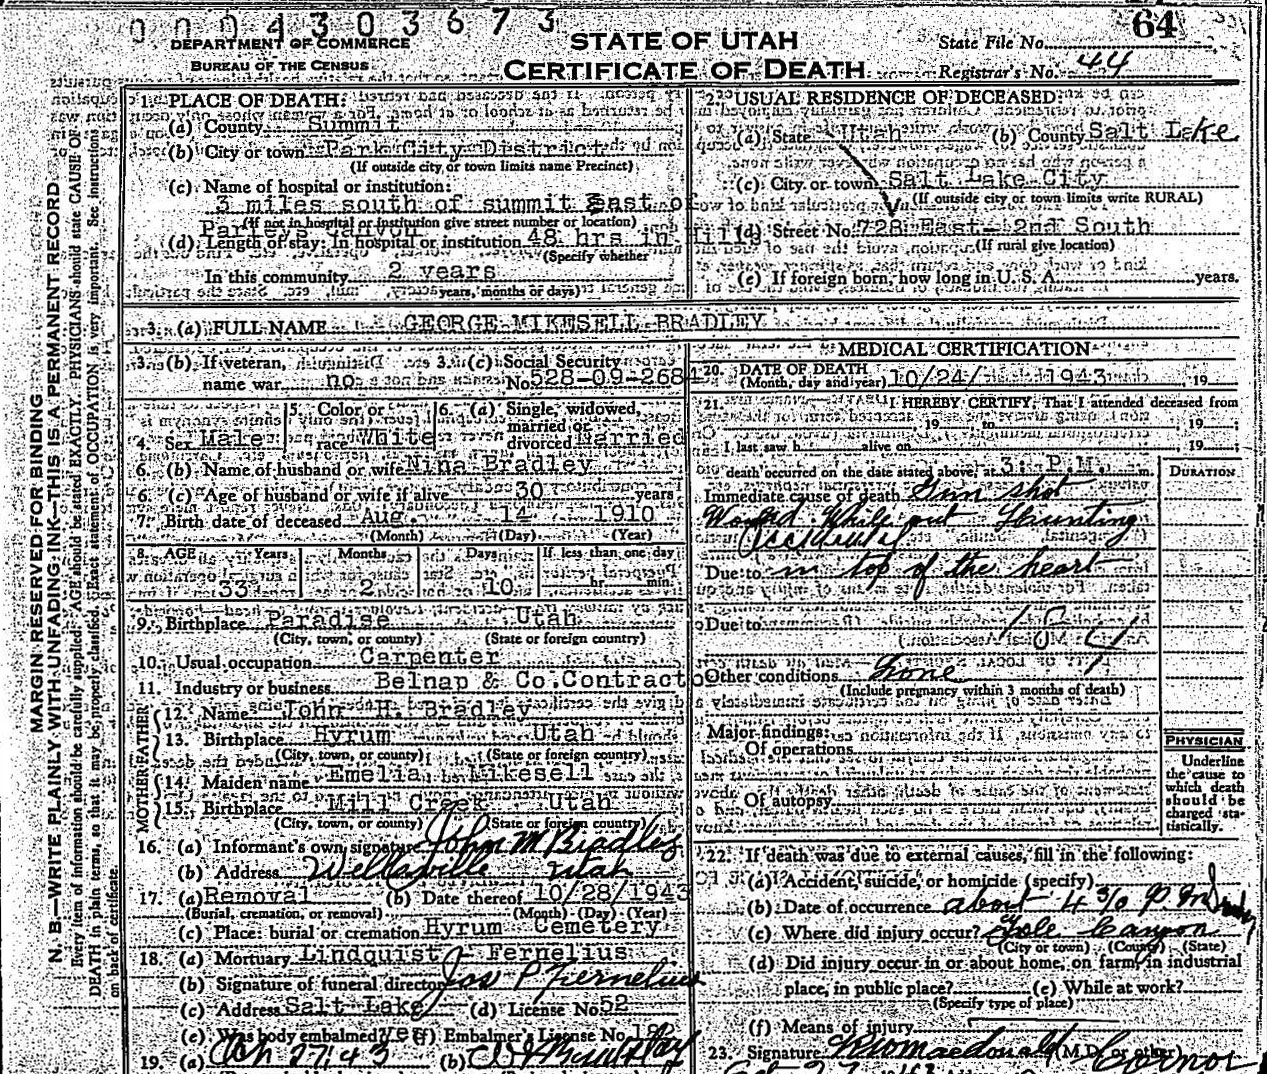 0004303673
DEPARTMENT OF COMMERCE
BUREAU OF THE CENSUS
STATE OF UTAH
CERTIFICATE OF DEATH
64
State File No.
Registrar's No. 44
MARGIN RESERVED FOR BINDING
N. B.—WRITE PLAINLY WITH UNFADING INK—THIS IS A PERMANENT RECORD
Every item of information should be carefully supplied. AGE should be stated EXACTLY. PHYSICIANS should state CAUSE OF
DEATH in plain terms, so that it may be properly classified. Exact statement of OCCUPATION is very important. See instructions
on back of certificate.
1. PLACE OF DEATH:
(a) County Summit
(b) City or town Park City District
(If outside city or town limits name Precinct)
(c) Name of hospital or institution:
3 miles south of summit East of
(If not in hospital or institution give street number or location)
Parleys
(d) Length of stay: In hospital or institution 48 hrs in Hills
(Specify whether
In this community 2 years
years, months or days)
2. USUAL RESIDENCE OF DECEASED:
(a) State Utah (b) County Salt Lake
(c) City or town Salt Lake City
(If outside city or town limits write RURAL)
(d) Street No. 728 East 2nd South
(If rural give location)
(e) If foreign born, how long in U. S. A. years.
3. (a) FULL NAME GEORGE MIKESELL BRADLEY
3. (b) If veteran, name war no
3. (c) Social Security No. 528-09-2684
4. Sex Male
5. Color or race White
6. (a) Single, widowed, married or divorced Married
6. (b) Name of husband or wife Nina Bradley
6. (c) Age of husband or wife if alive 30 years
7. Birth date of deceased Aug. 14 1910
(Month) (Day) (Year)
8. AGE Years Months Days If less than one day
33 2 10 hr. min.
9. Birthplace Paradise Utah
(City, town, or county) (State or foreign country)
10. Usual occupation Carpenter
11. Industry or business Belnap & Co. Contracto
FATHER
12. Name John H. Bradley
13. Birthplace Hyrum Utah
(City, town, or county) (State or foreign country)
MOTHER
14. Maiden name Emelia Mikesell
15. Birthplace Mill Creek Utah
(City, town, or county) (State or foreign country)
16. (a) Informant's own signature John M Bradley
(b) Address Wellsville Utah
17. (a) Removal (b) Date thereof 10/28/1943
(Burial, cremation, or removal) (Month) (Day) (Year)
(c) Place: burial or cremation Hyrum Cemetery
18. (a) Mortuary Lindquist - Fernelius
(b) Signature of funeral director Jos P Fernelius
(c) Address Salt Lake (d) License No. 52
(e) Was body embalmed? yes (f) Embalmer's License No.
19. (a) 27, 43 (b)
MEDICAL CERTIFICATION
20. DATE OF DEATH
(Month, day and year) 10/24/ 1943, 19
21. I HEREBY CERTIFY, That I attended deceased from
19 to 19 ;
I last saw h alive on 19 ;
death occurred on the date stated above, at 3: P.M. m.
DURATION
Immediate cause of death Gun shot
Wound While out Hunting
Accidental
Due to in top of the heart
Due to
Other conditions None
(Include pregnancy within 3 months of death)
Major findings:
Of operations
Of autopsy
PHYSICIAN
Underline
the cause to
which death
should be
charged sta-
tistically.
22. If death was due to external causes, fill in the following:
(a) Accident, suicide, or homicide (specify)
(b) Date of occurrence about 4 30 P M
(c) Where did injury occur? Canyon
(City or town) (County) (State)
(d) Did injury occur in or about home, on farm, in industrial
place, in public place? (e) While at work?
(Specify type of place)
(f) Means of injury
23. Signature (M.D. or other)